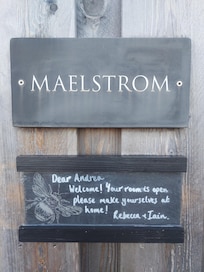 MAELSTROM
Dear Andrea
Welcome! Your room is open
please make yourselves at
home!
Rebecca + Iain.